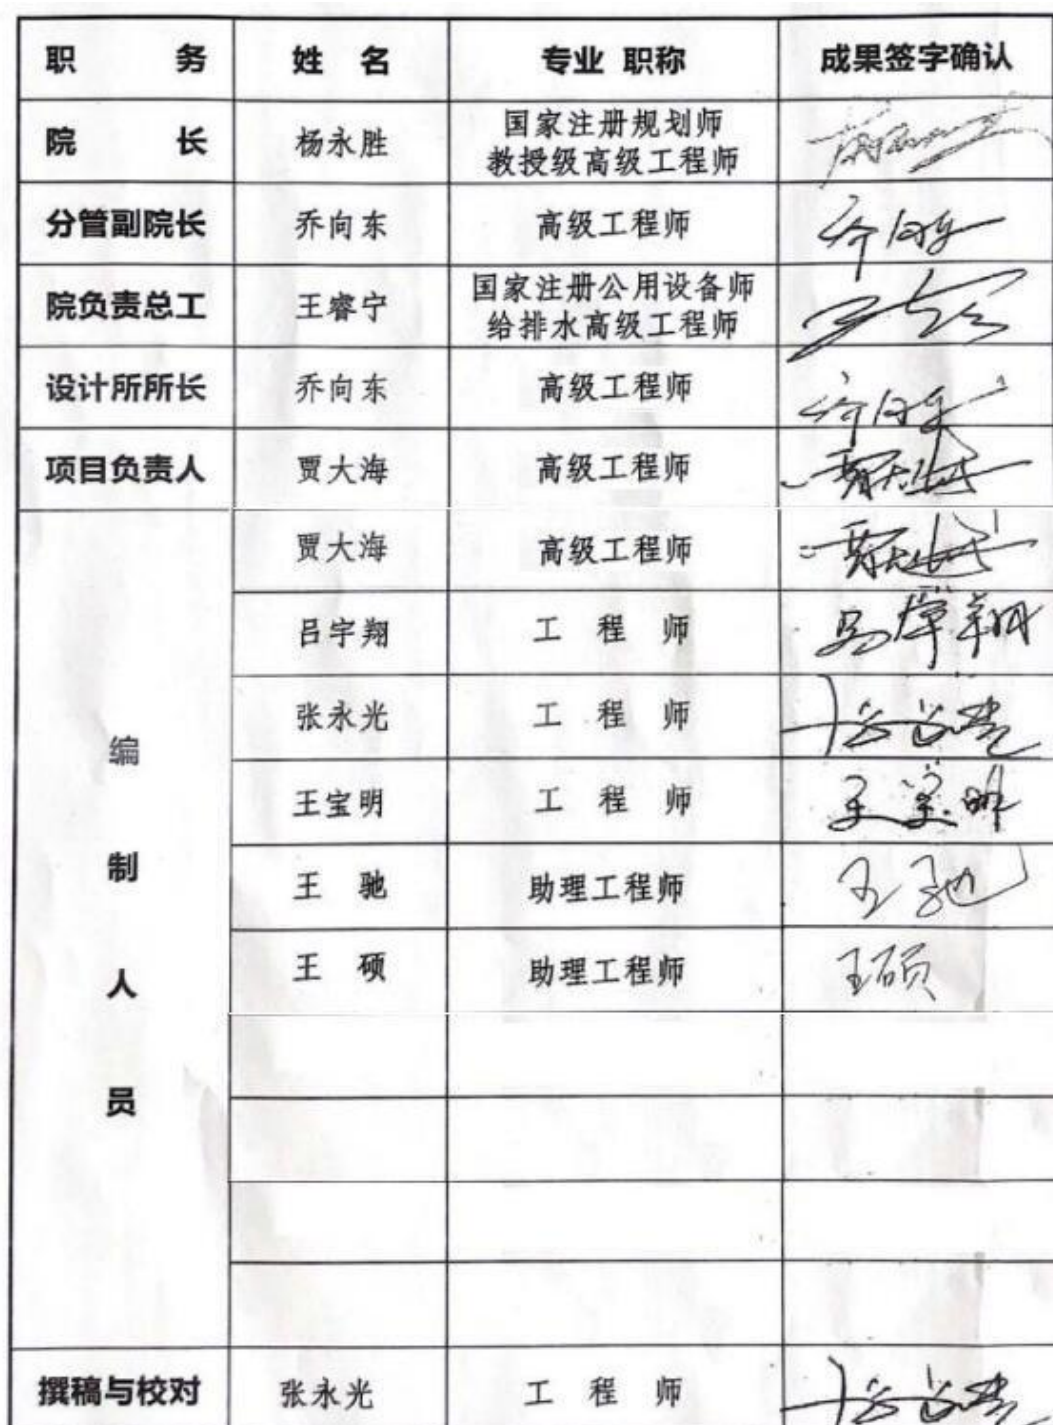 职 务 姓 名 专业 职称 成果签字确认
院 长 杨永胜 国家注册规划师
教授级高级工程师
分管副院长 乔向东 高级工程师 乔向东
院负责总工 王睿宁 国家注册公用设备师
给排水高级工程师
设计所所长 乔向东 高级工程师 乔向东
项目负责人 贾大海 高级工程师
编制人员
贾大海 高级工程师
吕宇翔 工 程 师
张永光 工 程 师
王宝明 工 程 师 王宝明
王 驰 助理工程师 王驰
王 硕 助理工程师 王硕
撰稿与校对 张永光 工 程 师